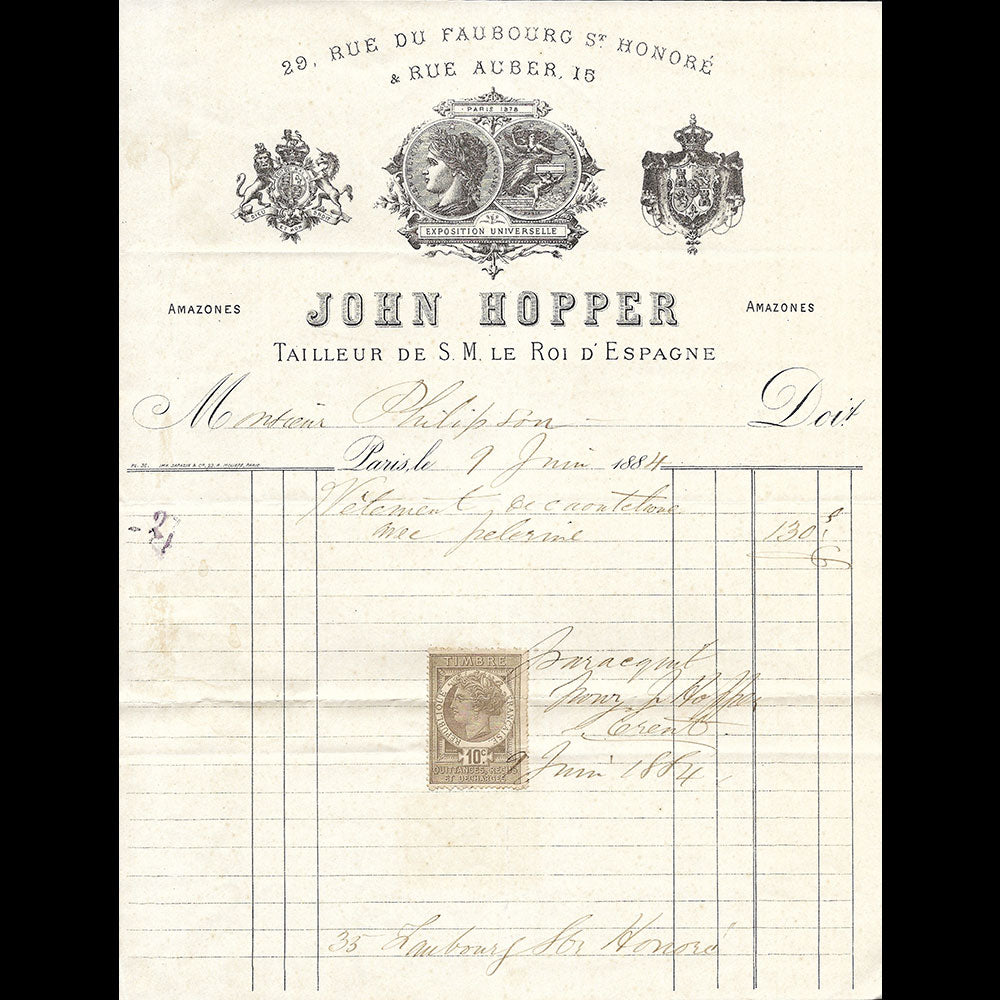 29, RUE DU FAUBOURG ST HONORÉ
& RUE AUBER, 15
PARIS 1878
EXPOSITION UNIVERSELLE
AMAZONES
JOHN HOPPER
AMAZONES
TAILLEUR DE S. M. LE ROI D'ESPAGNE
Monsieur Philipson
Doit
Paris, le 9 Juin 1884
Vêtement de caoutchouc
avec pelerine 130
TIMBRE
RÉPUBLIQUE FRANÇAISE
10c
QUITTANCES, REÇUS
ET DÉCHARGES
par acquit
pour J Hopper
9 Juin 1884
35 Faubourg St Honoré